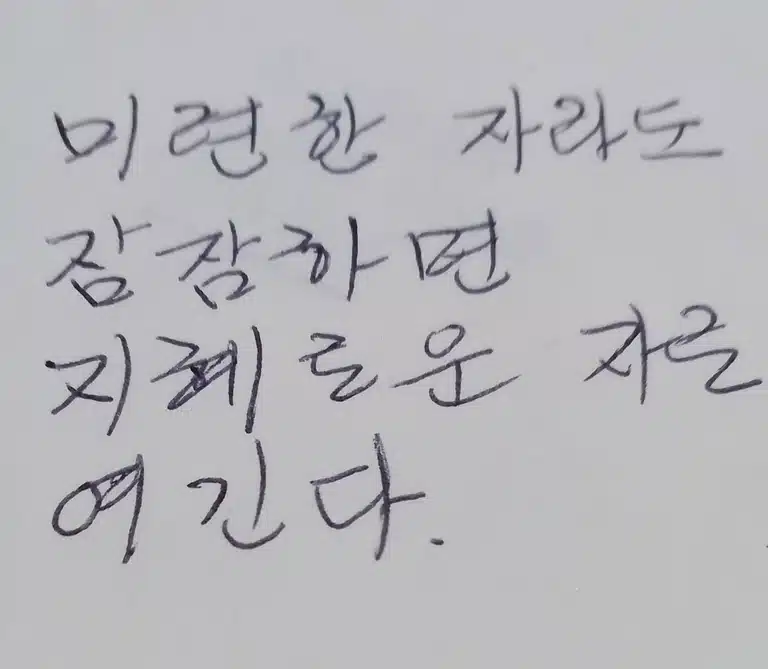 미련한 자라도
잠잠하면
지혜로운 자로
여긴다.